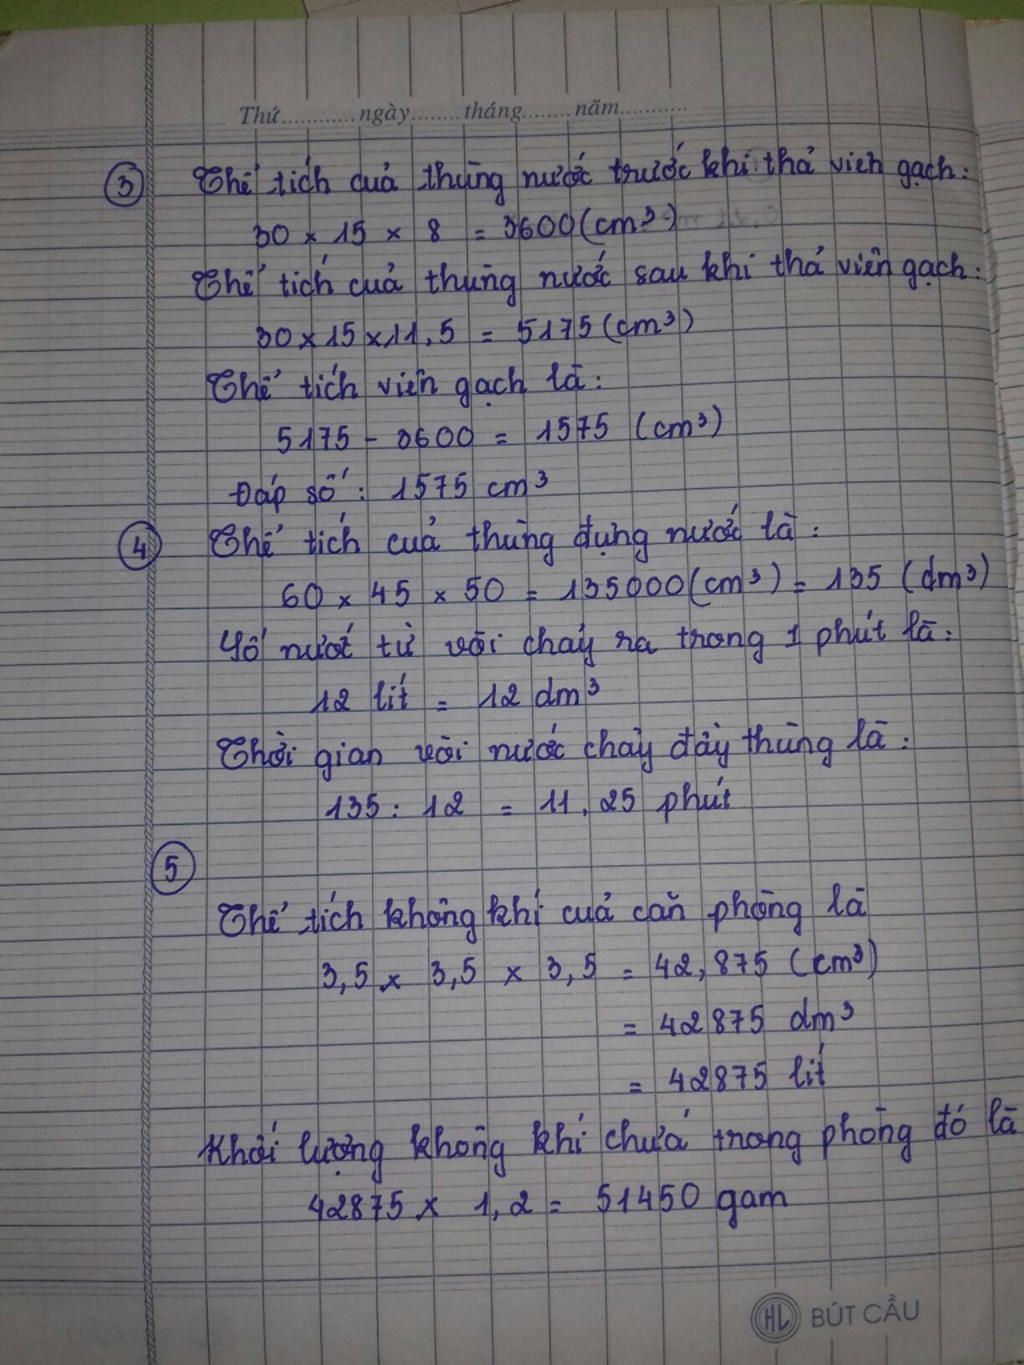 Thứ............ngày........tháng........năm...........
③ Thể tích của thùng nước trước khi thả viên gạch:
30 x 15 x 8 = 3600 (cm³)
Thể tích của thùng nước sau khi thả viên gạch:
30 x 15 x 11,5 = 5175 (cm³)
Thể tích viên gạch là:
5175 - 3600 = 1575 (cm³)
Đáp số: 1575 cm³
④ Thể tích của thùng đựng nước là:
60 x 45 x 50 = 135000 (cm³) = 135 (dm³)
Số nước từ vòi chảy ra trong 1 phút là:
12 lít = 12 dm³
Thời gian vòi nước chảy đầy thùng là:
135 : 12 = 11,25 phút
⑤
Thể tích không khí của căn phòng là
3,5 x 3,5 x 3,5 = 42,875 (cm³)
= 42875 dm³
= 42875 lít
Khối lượng không khí chứa trong phòng đó là
42875 x 1,2 = 51450 gam
HL BÚT CẦU